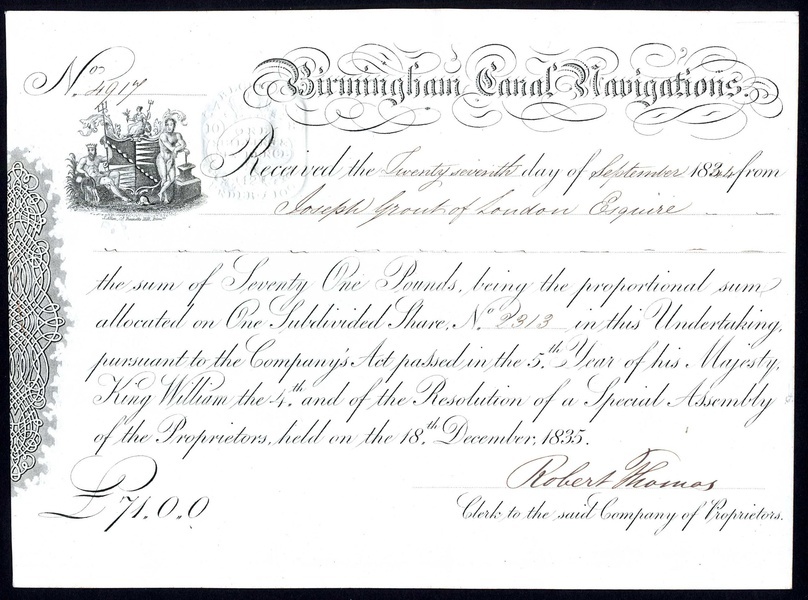 No. 4917
Birmingham Canal Navigations.
Received the Twenty seventh day of September 1844 from
Joseph Grout of London Esquire
the sum of Seventy One Pounds, being the proportional sum
allocated on One Subdivided Share, No. 2313 in this Undertaking,
pursuant to the Company's Act passed in the 5th. Year of his Majesty,
King William the 4th. and of the Resolution of a Special Assembly
of the Proprietors, held on the 18th. December, 1835.
Robert Thomas
£71.0.0
Clerk to the said Company of Proprietors.